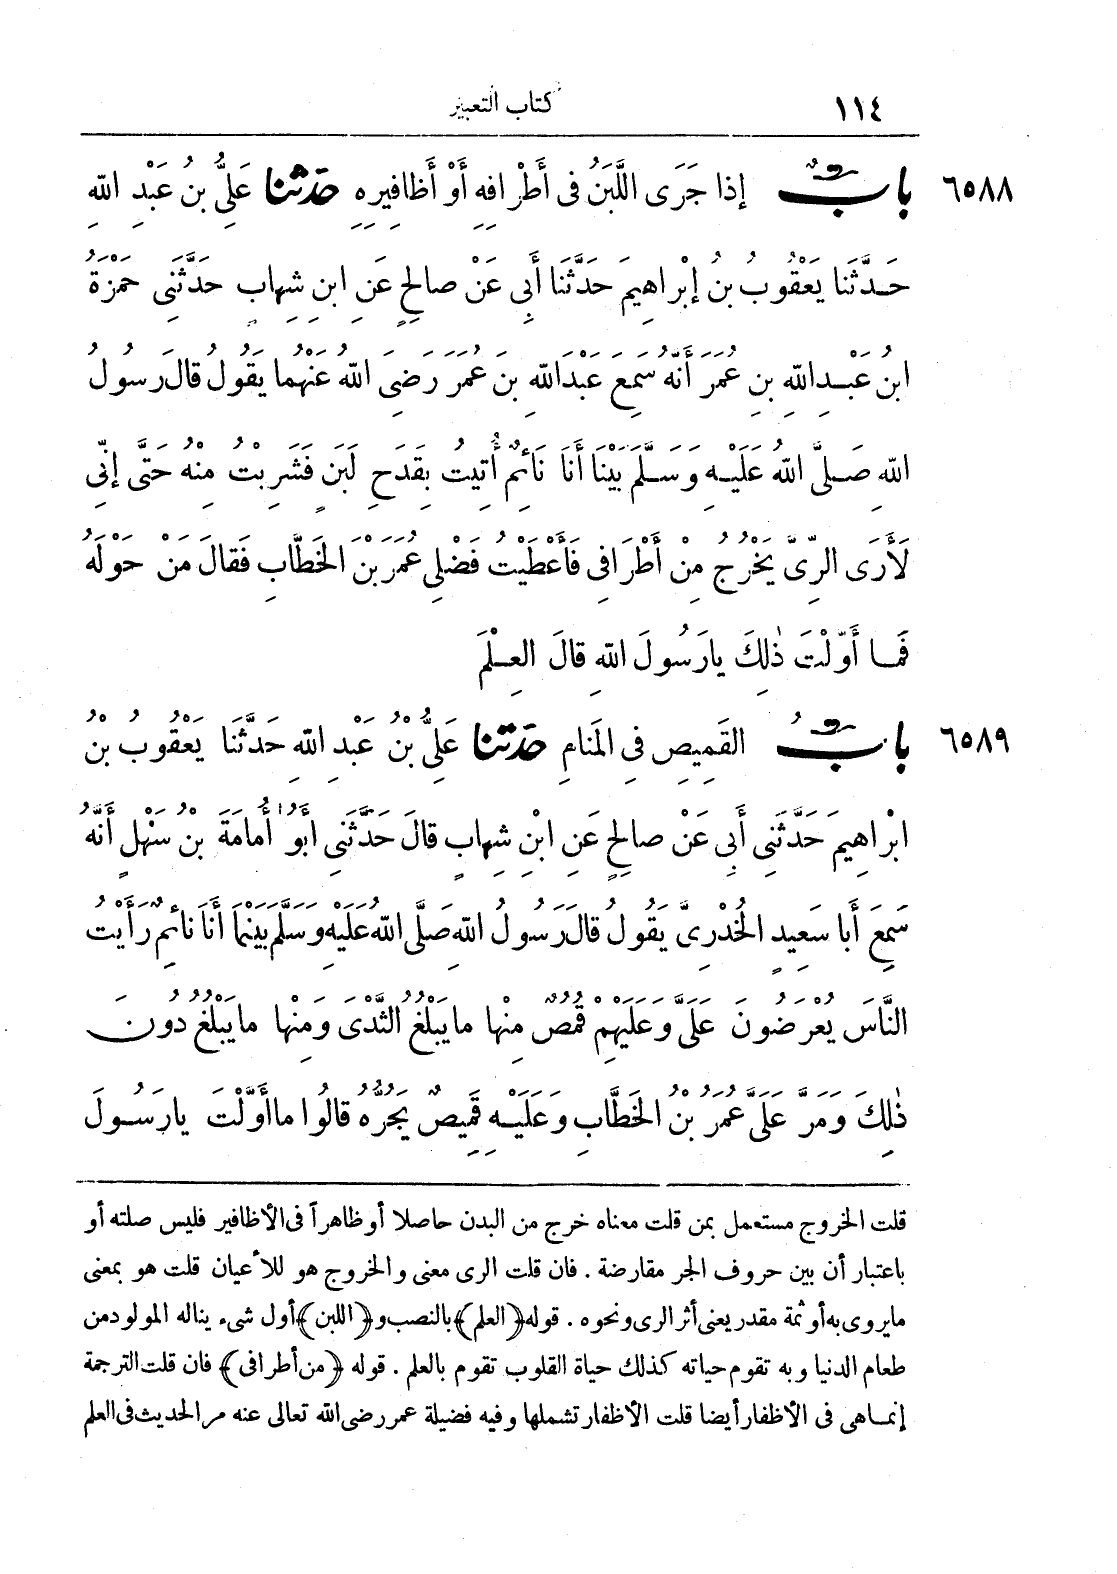 ١١٤ كتاب التعبير
٦٥٨٨ بابٌ إذا جَرَى اللَّبَنُ فى أَطْرافِهِ أَوْ أَظافِيرِهِ حَدَّثنا عَلِىُّ بنُ عَبْدِ اللهِ
حَدَّثَنا يَعْقُوبُ بنُ إبْراهِيمَ حَدَّثَنا أَبِى عَنْ صالِحٍ عَنِ ابنِ شِهابٍ حَدَّثَنِى حَمْزَةُ
ابنُ عَبْدِ اللهِ بنِ عُمَرَ أَنَّهُ سَمِعَ عَبْدَ اللهِ بنَ عُمَرَ رَضِىَ اللهُ عَنْهُما يَقُولُ قالَ رَسُولُ
اللهِ صَلَّى اللهُ عَلَيْهِ وَسَلَّمَ بَيْنَا أَنَا نَائِمٌ أُتِيتُ بِقَدَحِ لَبَنٍ فَشَرِبْتُ مِنْهُ حَتَّى إنِّى
لَأَرَى الرِّىَّ يَخْرُجُ مِنْ أَطْرَافِى فَأَعْطَيْتُ فَضْلِى عُمَرَ بْنَ الخَطَّابِ فَقالَ مَنْ حَوْلَهُ
فَمَا أَوَّلْتَ ذٰلِكَ يا رَسُولَ اللهِ قالَ العِلْمَ
٦٥٨٩ بابُ القَمِيصِ فِى المَنامِ حَدَّثنا عَلِىُّ بْنُ عَبْدِ اللهِ حَدَّثَنا يَعْقُوبُ بْنُ
ابْراهِيمَ حَدَّثَنِى أَبِى عَنْ صالِحٍ عَنِ ابْنِ شِهابٍ قالَ حَدَّثَنِى أَبُو أُمامَةَ بْنُ سَهْلٍ أَنَّهُ
سَمِعَ أَبا سَعِيدٍ الخُدْرِىَّ يَقُولُ قالَ رَسُولُ اللهِ صَلَّى اللهُ عَلَيْهِ وَسَلَّمَ بَيْنَمَا أَنَا نائِمٌ رَأَيْتُ
النَّاسَ يُعْرَضُونَ عَلَىَّ وَعَلَيْهِمْ قُمُصٌ مِنْها ما يَبْلُغُ الثَّدْىَ وَمِنْها ما يَبْلُغُ دُونَ
ذٰلِكَ وَمَرَّ عَلَىَّ عُمَرُ بْنُ الخَطَّابِ وَعَلَيْهِ قَمِيصٌ يَجُرُّهُ قالُوا ما أَوَّلْتَ يا رَسُولَ
قلت الخروج مستعمل بمن قلت معناه خرج من البدن حاصلا أو ظاهراً فى الأظافير فليس صلته أو
باعتبار أن بين حروف الجر مقارضة . فان قلت الرى معنى والخروج هو للأعيان قلت هو بمعنى
ما يروى به أو ثمة مقدر يعنى أثر الرى ونحوه . قوله ﴿العلم﴾ بالنصب و﴿اللبن﴾ أول شىء يناله المولود من
طعام الدنيا وبه تقوم حياته كذلك حياة القلوب تقوم بالعلم . قوله ﴿من أطرافى﴾ فان قلت الترجمة
إنما هى فى الأظفار أيضا قلت الأظفار تشملها وفيه فضيلة عمر رضى الله تعالى عنه مر الحديث فى العلم